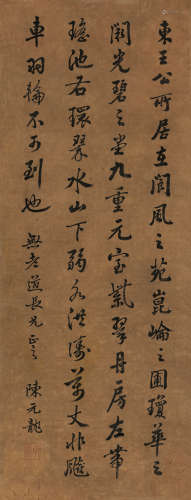 東王公所居在閬風之苑崑崙之圃瓊華之
闕光碧之堂九重元室紫翠丹房左帶
瑤池右環翠水山下弱水洪濤萬丈非飈
車羽輪不可到也
無老道長兄正之
陳元龍